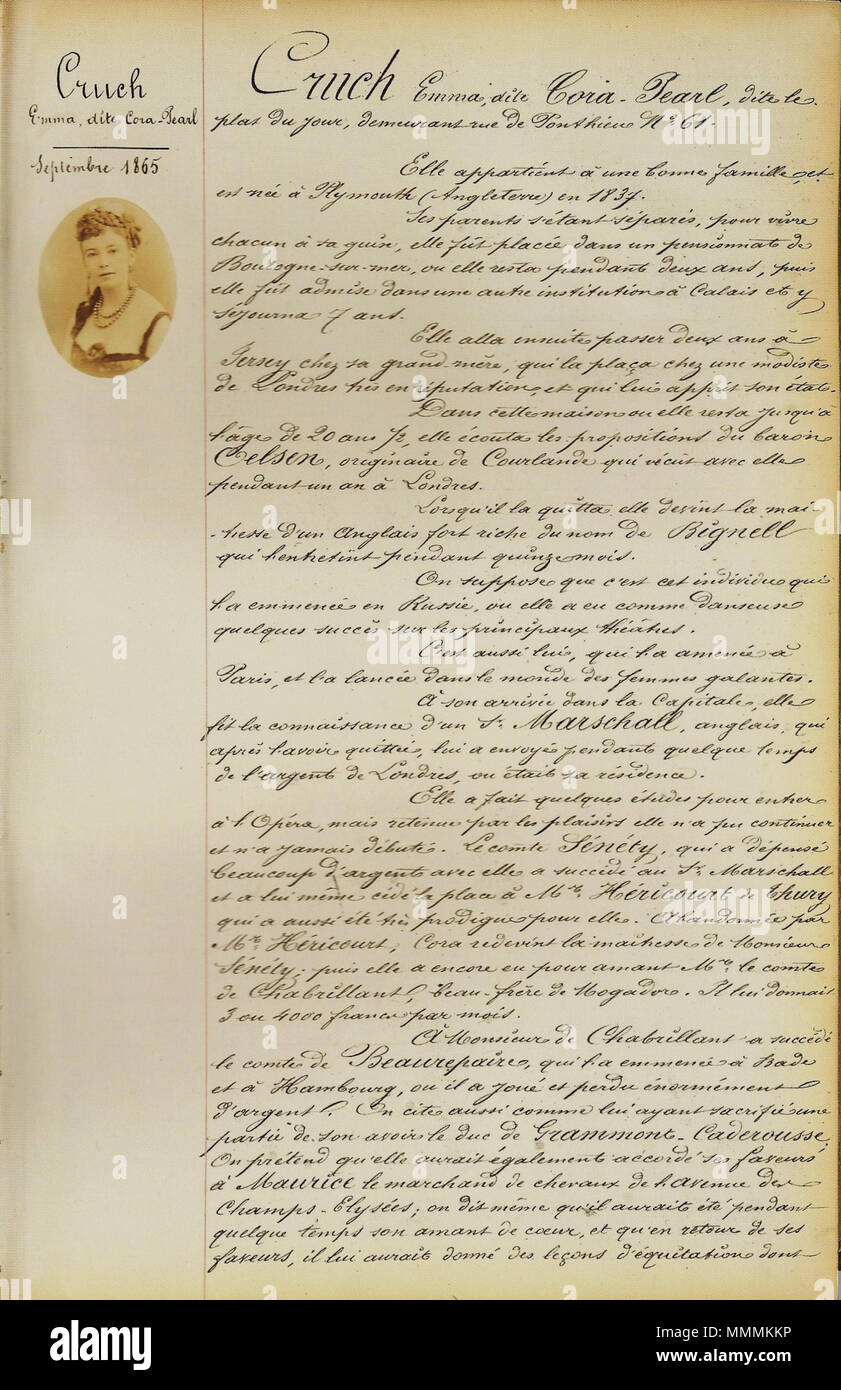 Cruch
Emma, dite Cora-Pearl
Septembre 1865
Cruch Emma, dite Cora-Pearl, dite le
plat du jour, demeurant rue de Ponthieu No 61.
Elle appartient à une bonne famille, et
est née à Plymouth (Angleterre) en 1837.
Ses parents s'étant séparés, pour vivre
chacun à sa guise, elle fut placée dans un pensionnat de
Boulogne-sur-mer, ou elle resta pendant deux ans, puis
elle fut admise dans une autre institution à Calais et y
séjourna 7 ans.
Elle alla ensuite passer deux ans à
Jersey chez sa grand-mère, qui la plaça chez une modiste
de Londres très en réputation, et qui lui apprit son état.
Dans cette maison ou elle resta jusqu'à
l'âge de 20 ans 1/2, elle écouta les propositions du baron
Oelsen, originaire de Courlande qui vécut avec elle
pendant un an à Londres.
Lorsqu'il la quitta elle devint la maî-
-tresse d'un Anglais fort riche du nom de Bignell
qui l'entretint pendant quinze mois.
On suppose que c'est cet individu qui
l'a emmenée en Russie, ou elle a eu comme danseuse
quelques succès sur les principaux théâtres.
C'est aussi lui, qui l'a amenée à
Paris, et l'a lancée dans le monde des femmes galantes.
A son arrivée dans la Capitale, elle
fit la connaissance d'un Sr. Marschall, anglais, qui
après l'avoir quittée, lui a envoyé pendant quelque temps
de l'argent de Londres, ou était sa résidence.
Elle a fait quelques études pour entrer
à l'Opéra, mais retenue par les plaisirs elle n'a pu continuer
et n'a jamais débuté. Le comte Sénéty, qui a dépensé
beaucoup d'argent avec elle a succédé au Sr. Marschall
et a lui même cédé la place à Mr. Héricourt de Thury
qui a aussi été très prodigue pour elle. Abandonnée par
Mr. Héricourt, Cora redevint la maîtresse de Monsieur
Sénéty; puis elle a encore eu pour amant Mr. le comte
de Chabrillant, beau-frère de Mogador. Il lui donnait
3 ou 4000 francs par mois.
A Monsieur de Chabrillant a succédé
le comte de Beaurepaire, qui l'a emmenée à Bade
et à Hambourg, ou il a joué et perdu énormément
d'argent. On cite aussi comme lui ayant sacrifié une
partie de son avoir le duc de Grammont-Caderousse.
On prétend qu'elle aurait également accordé ses faveurs
à Maurice le marchand de chevaux de l'avenue des
Champs-Elysées; on dit même qu'il aurait été pendant
quelque temps son amant de cœur, et qu'en retour de ses
faveurs, il lui aurait donné des leçons d'équitation dont
alamy
Image ID: MMMKKP
www.alamy.com